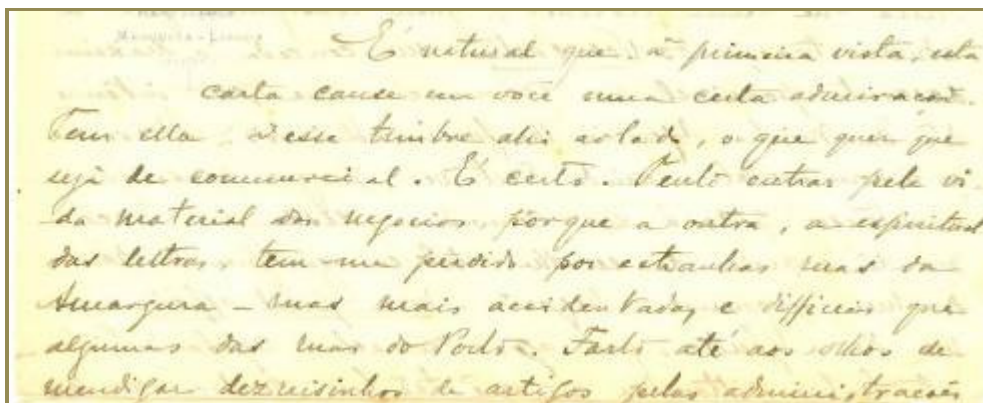 É natural que á primeira vista, esta
carta cause em você uma certa admiração.
Tem ella n'esse timbre ahi ao lado, o que quer que
seja de commercial. É certo. Tento entrar pela vi
da material dos negocios, porque a outra, a espiritual
das lettras, tem-me perdido por estranhas ruas da
Amargura – ruas mais accidentadas e difficeis que
algumas das ruas do Porto. Farto até aos olhos de
mendigar dezreisinhos de artigos pelas administrações